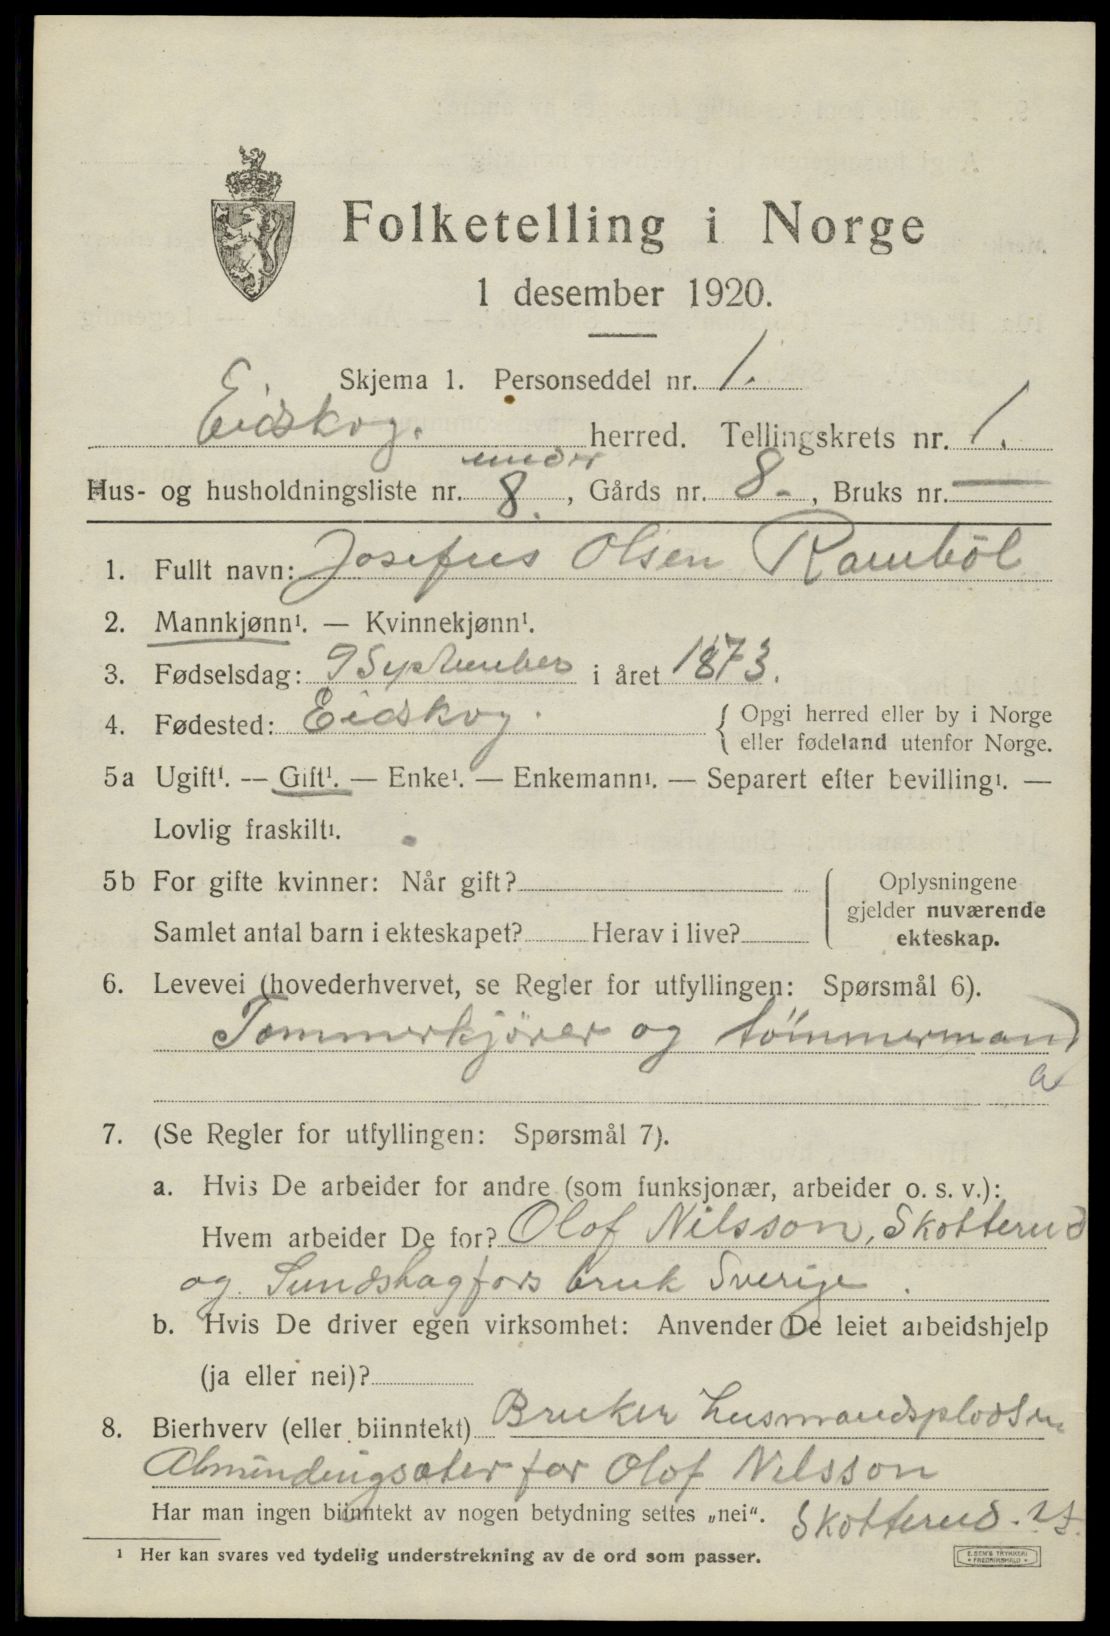 Folketelling i Norge
1 desember 1920.
Skjema 1. Personseddel nr. 1.
Eidskog. herred. Tellingskrets nr. 1.
under
Hus- og husholdningsliste nr. 8., Gårds nr. 8., Bruks nr. —
1. Fullt navn: Josefus Olsen Rambøl
2. Mannkjønn¹. — Kvinnekjønn¹.
3. Fødselsdag: 9 September i året 1873.
4. Fødested: Eidskog. { Opgi herred eller by i Norge
eller fødeland utenfor Norge.
5a Ugift¹. — Gift¹. — Enke¹. — Enkemann¹. — Separert efter bevilling¹. —
Lovlig fraskilt¹.
5b For gifte kvinner: Når gift?
Samlet antal barn i ekteskapet? Herav i live?
Oplysningene
gjelder nuværende
ekteskap.
6. Levevei (hovederhvervet, se Regler for utfyllingen: Spørsmål 6).
Tømmerkjörer og tömmermand
a
7. (Se Regler for utfyllingen: Spørsmål 7).
a. Hvis De arbeider for andre (som funksjonær, arbeider o. s. v.):
Hvem arbeider De for? Olof Nilsson, Skotterud
og Sundshagfors bruk Sverige.
b. Hvis De driver egen virksomhet: Anvender De leiet arbeidshjelp
(ja eller nei)?
8. Bierhverv (eller biinntekt) Bruker husmandsplodsen
for Olof Nilsson
Har man ingen biinntekt av nogen betydning settes „nei“. Skotterud.
¹ Her kan svares ved tydelig understrekning av de ord som passer.
E. SEM'S TRYKKERI
FREDRIKSHALD